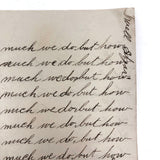 much we do but how
much we do but how
much we do but how
much we do but how
much we do but how
much we do but how
much we do but how